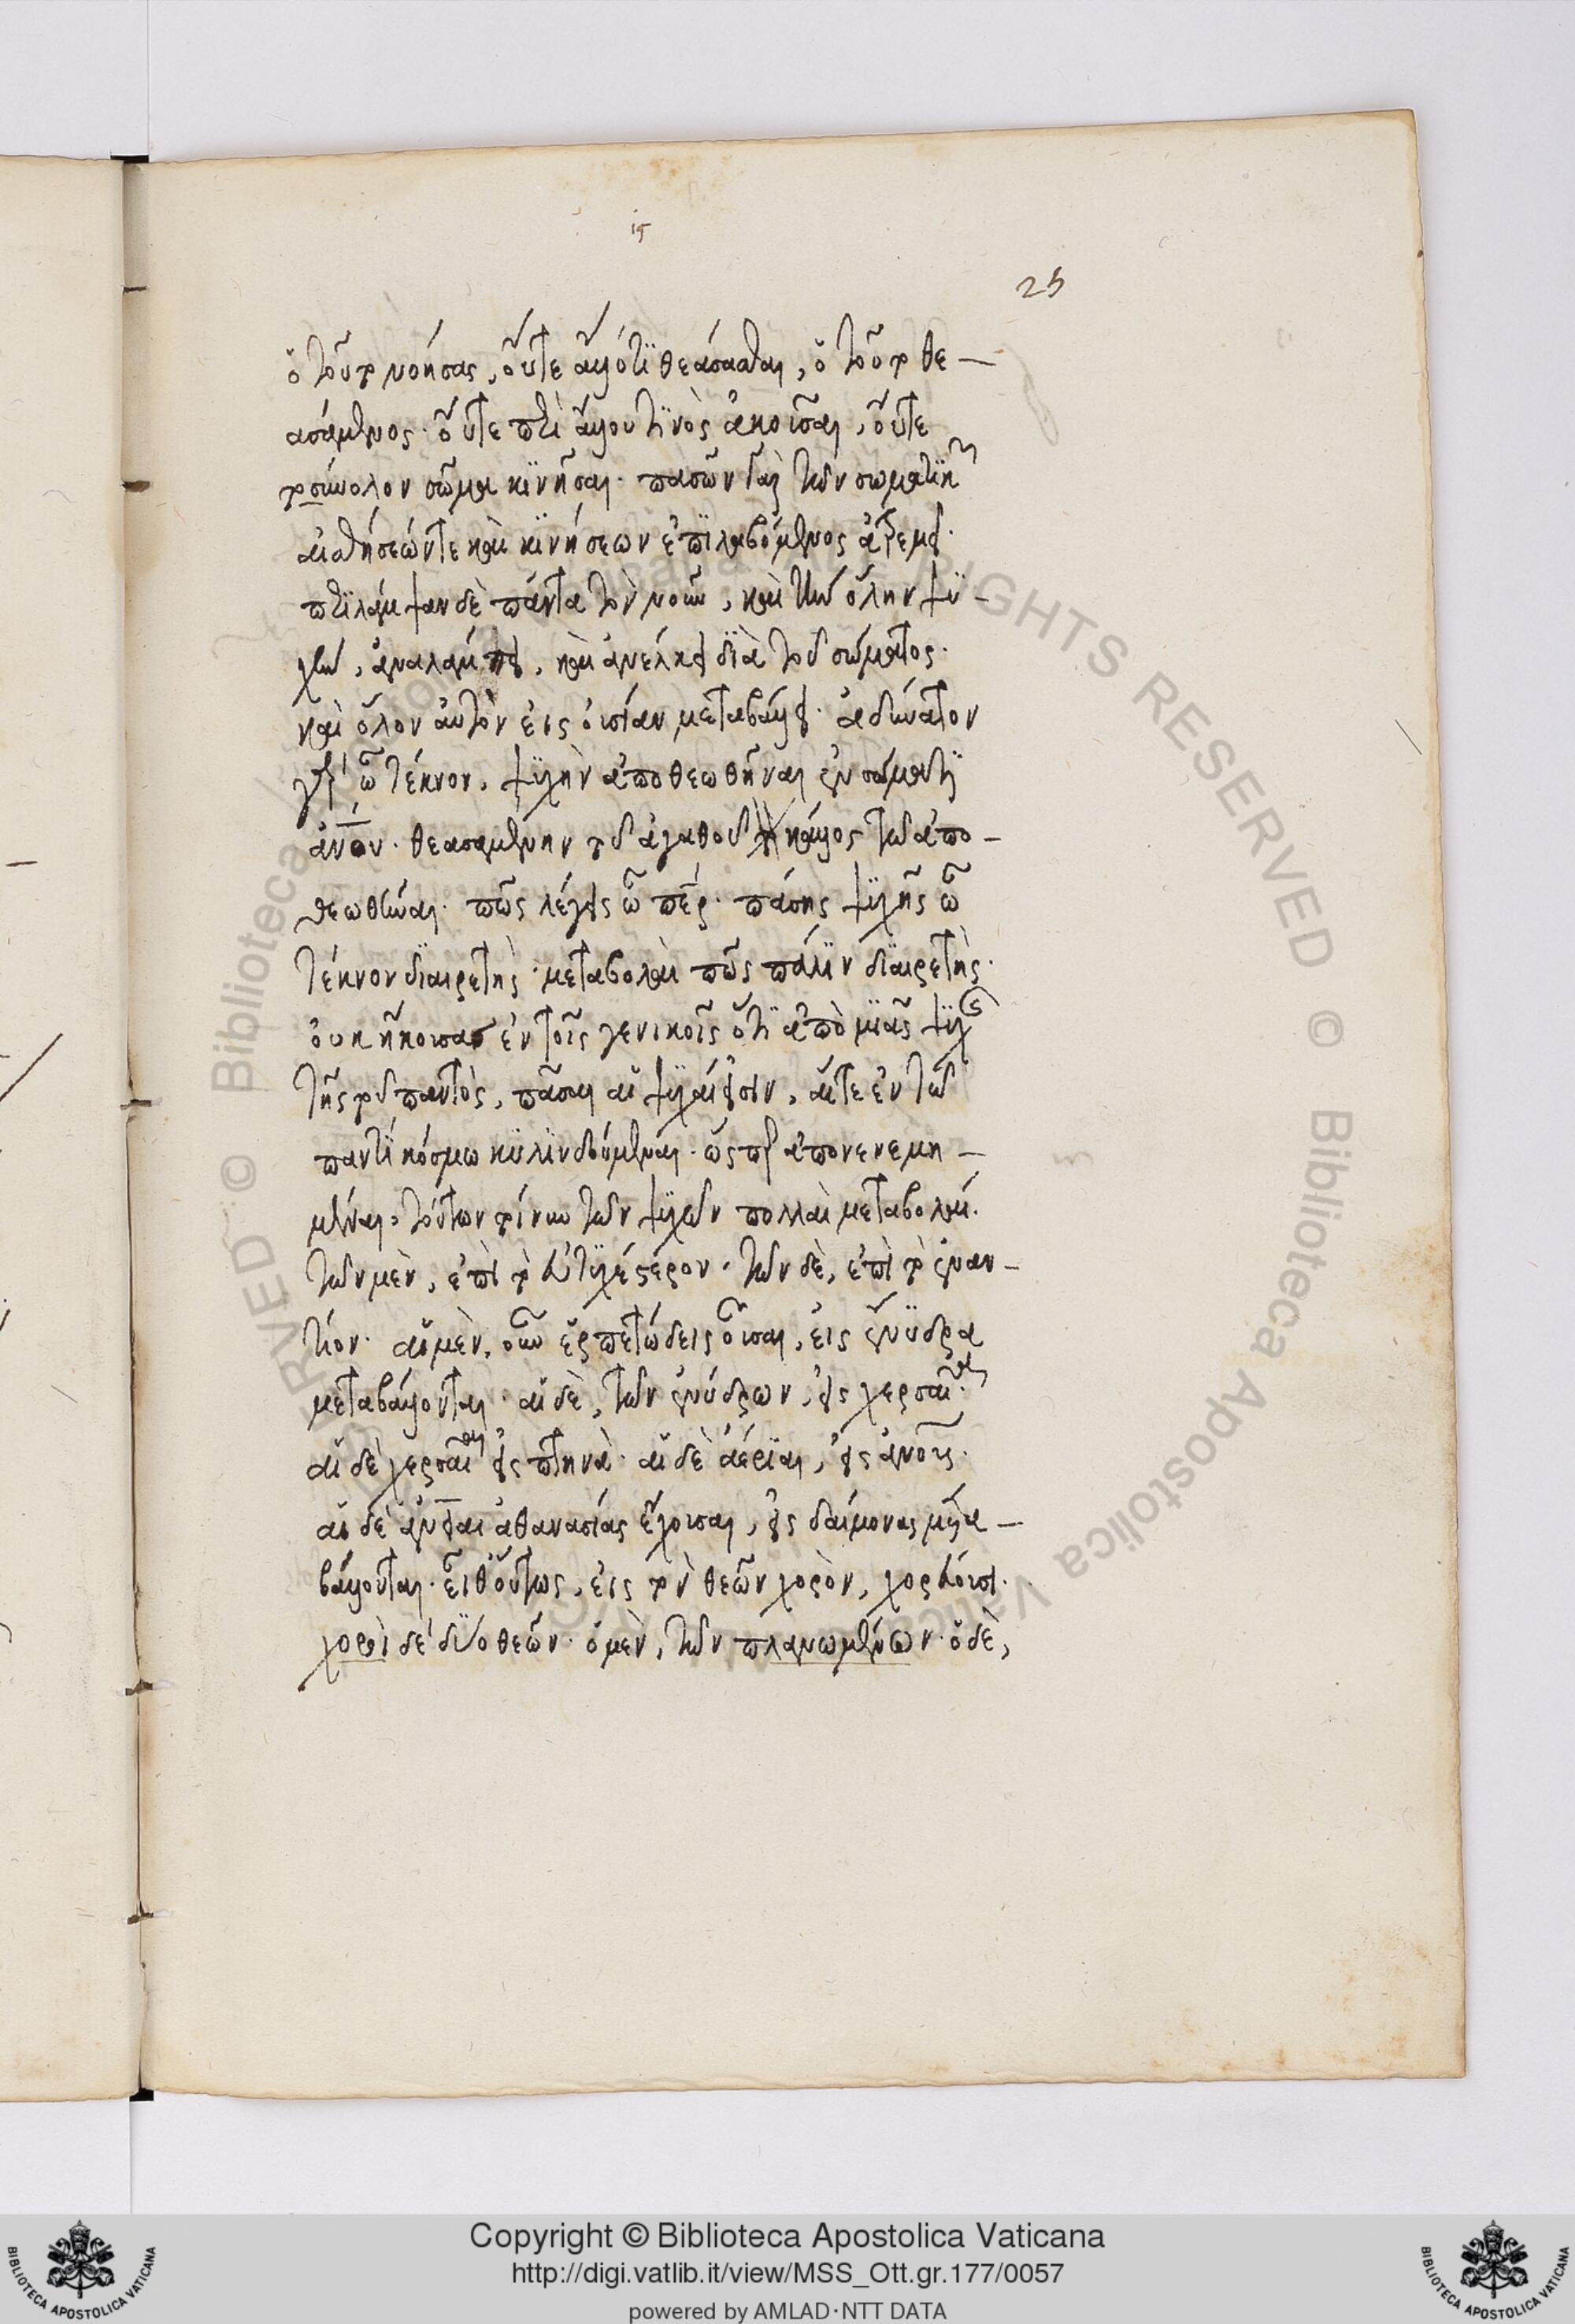 ις
25
ὁ τοῦτο νοήσας, οὔτε ἄλλό τι θεάσασθαι, ὁ τοῦτο θε-
ασάμενος· οὔτε περὶ ἄλλου τινὸς ἀκοῦσαι, οὔτε
τὸ σύνολον σῶμα κινῆσαι· πασῶν γὰρ τῶν σωματικῶν
αἰσθήσεών τε καὶ κινήσεων ἐπιλαβόμενος ἀτρεμεῖ·
περιλάμψαν δὲ πάντα τὸν νοῦν, καὶ τὴν ὅλην ψυ-
χὴν, ἀναλάμπει, καὶ ἀνέλκει διὰ τοῦ σώματος·
καὶ ὅλον αὐτὸν εἰς οὐσίαν μεταβάλλει· ἀδύνατον
γὰρ ὦ τέκνον, ψυχὴν ἀποθεωθῆναι ἐν σώματι
ἀνου· θεασαμένην τοῦ ἀγαθοῦ κάλλος τῶ ἀπο-
θεωθῆναι· πῶς λέγεις ὦ περ· πάσης ψυχῆς ὦ
τέκνον διαιρετῆς· μεταβολαὶ πῶς πάλιν διαιρετῆς·
οὐκ ἤκουσας ἐν τοῖς γενικοῖς ὅτι ἀπὸ μιᾶς ψυχῆς
τῆς τοῦ παντὸς, πᾶσαι αἱ ψυχαί εἰσιν, αἵτε ἐν τῶ
παντὶ κόσμω κυλινδούμεναι· ὥσπερ ἀπονενεμη-
μέναι· τούτων τοίνυν τῶν ψυχῶν πολλαὶ μεταβολαί·
τῶν μὲν, ἐπὶ τὸ εὐτυχέστερον· τῶν δὲ, ἐπὶ τὸ ἐναν-
τίον· αἱ μὲν, οὖν ἑρπετώδεις οὖσαι, εἰς ἔνυδρα
μεταβάλλονται· αἱ δὲ, τῶν ἐνύδρων, εἰς χερσαῖα·
αἱ δὲ χερσαῖαι εἰς πτηνὰ· αἱ δὲ ἀέριαι, εἰς ἀνους·
αἱ δὲ ἀνειαι ἀθανασίας ἔχουσαι, εἰς δαίμονας μετα-
βάλλονται· εἶθ' οὕτως, εἰς τὸν θεῶν χορὸν, χορεύουσι·
χοροὶ δὲ δύο θεῶν· ὁ μὲν, τῶν πλανωμένων· ὁ δὲ,
Copyright © Biblioteca Apostolica Vaticana
http://digi.vatlib.it/view/MSS_Ott.gr.177/0057
powered by AMLAD·NTT DATA